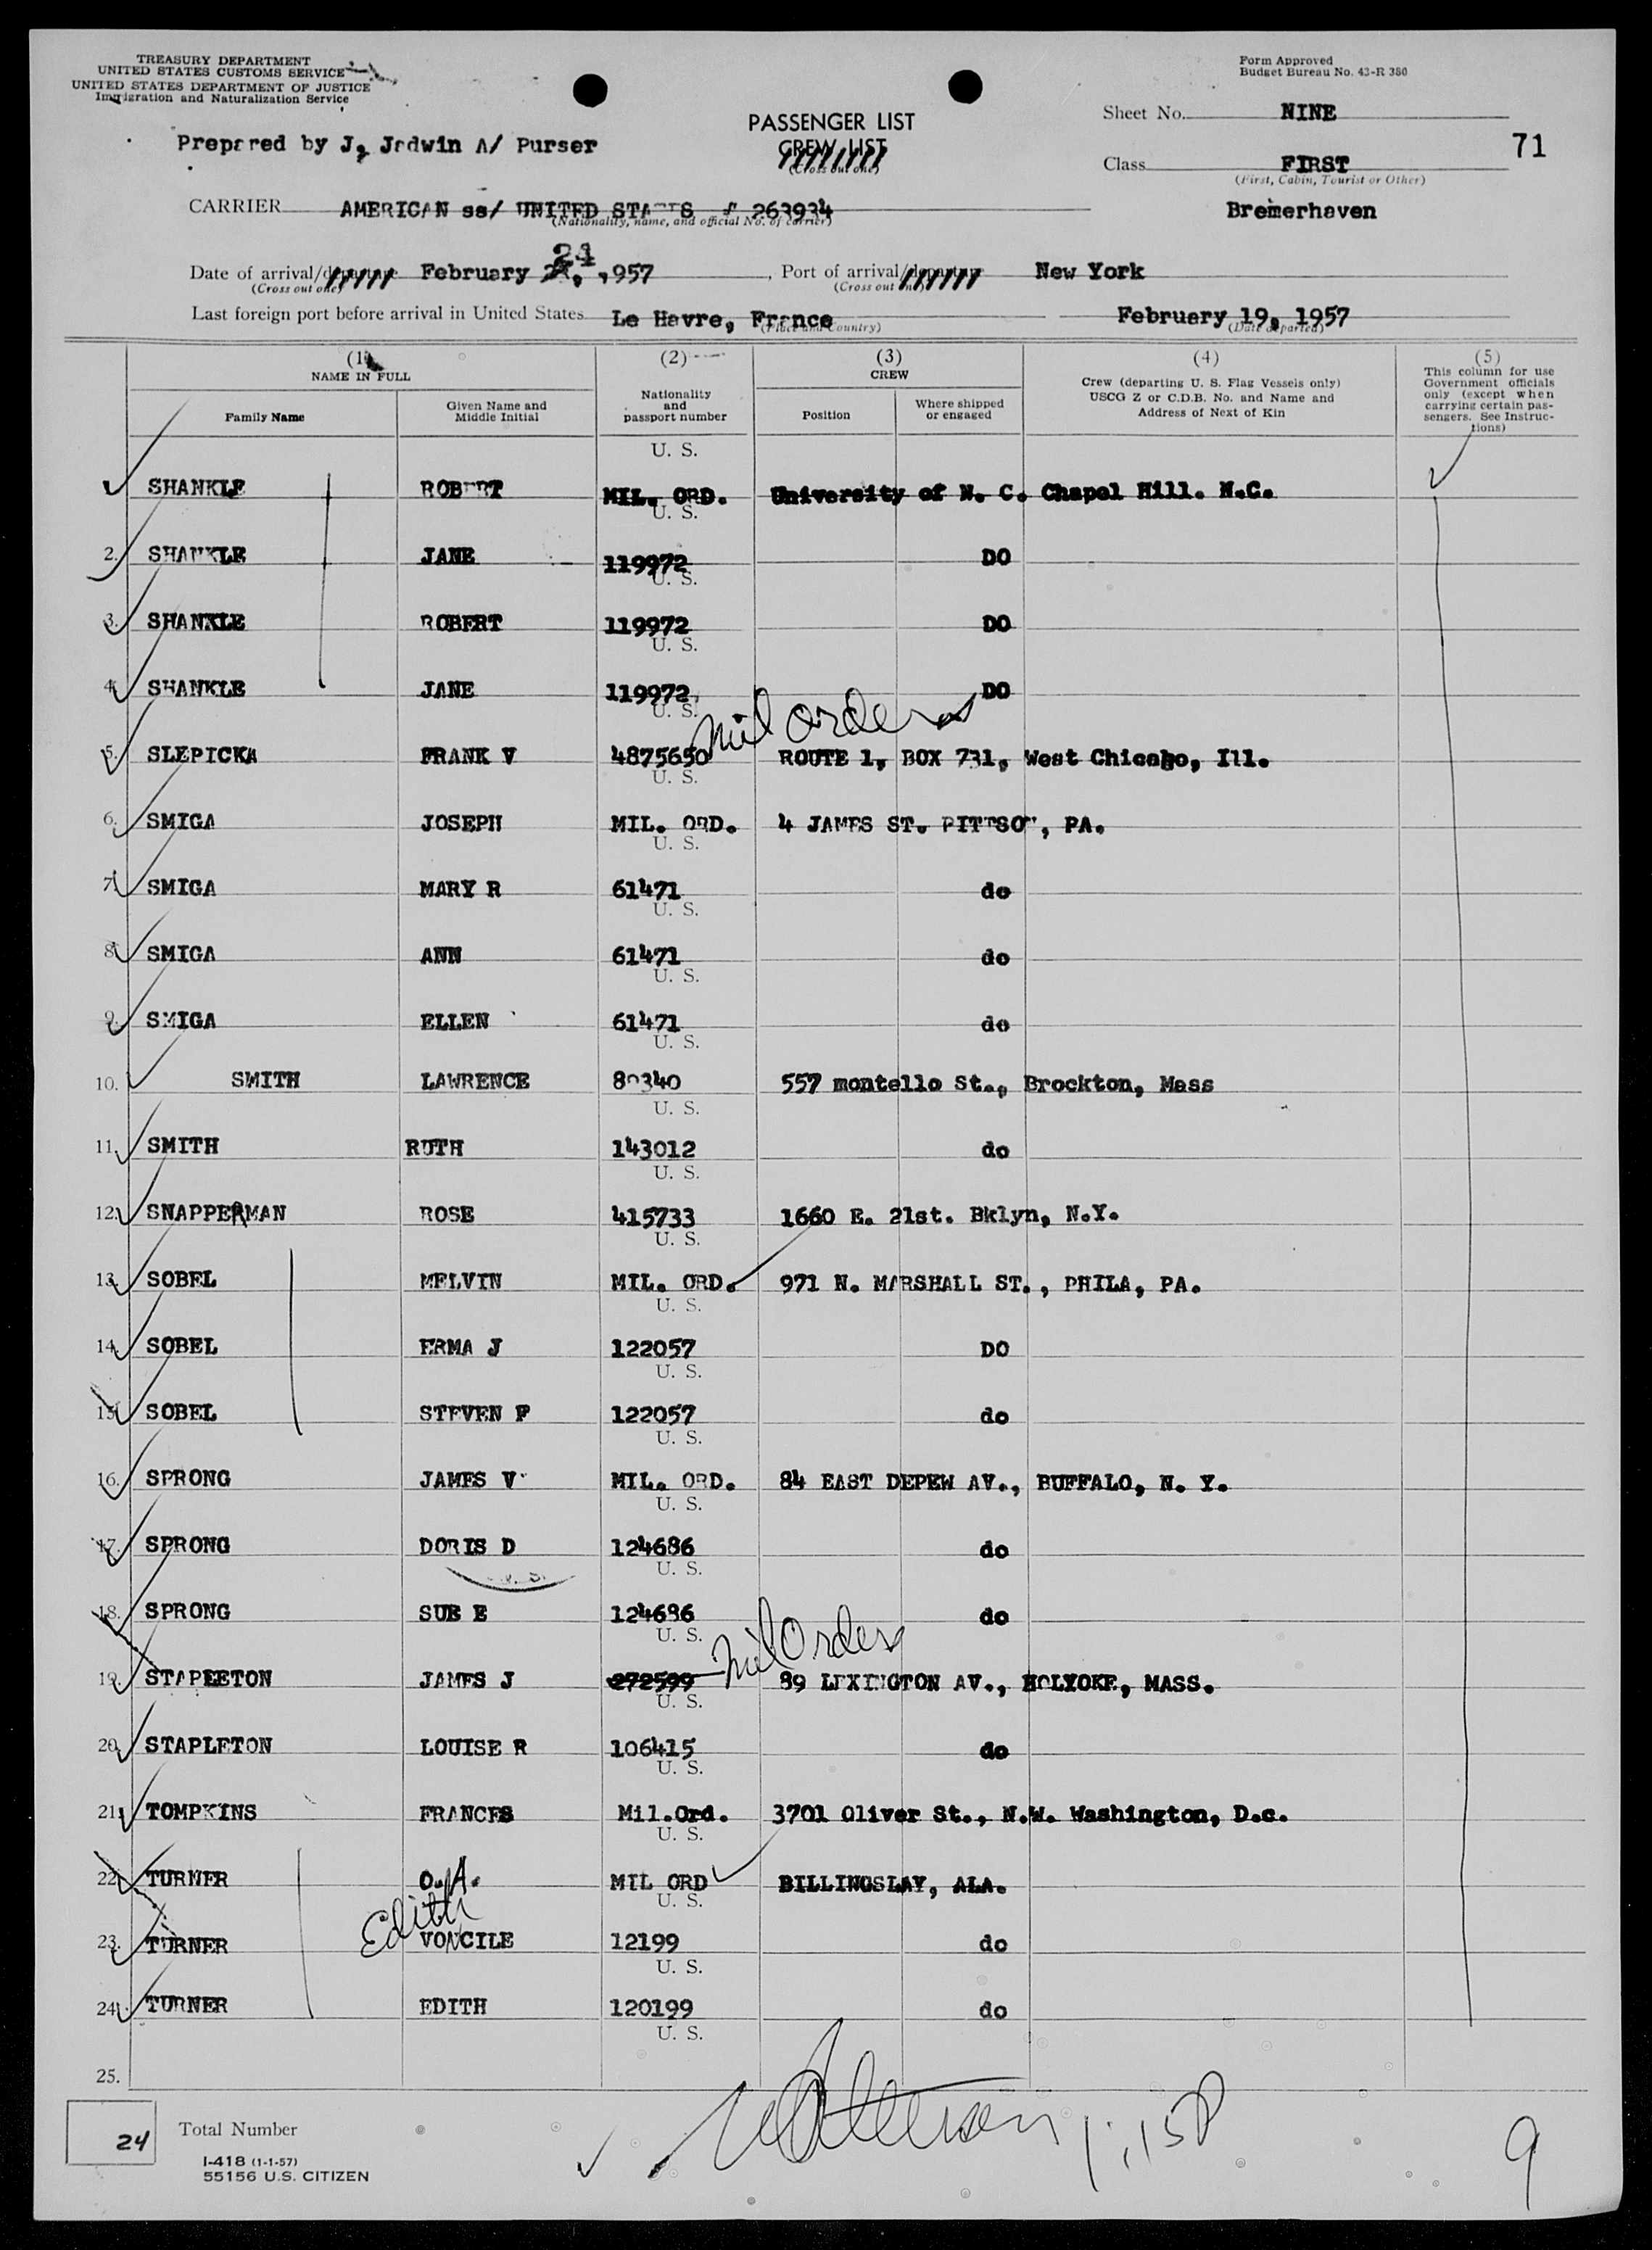 TREASURY DEPARTMENT
UNITED STATES CUSTOMS SERVICE
UNITED STATES DEPARTMENT OF JUSTICE
Immigration and Naturalization Service
Form Approved
Budget Bureau No. 43-R 380
PASSENGER LIST
CREW LIST
(Cross out one)
Sheet No. NINE
71
Prepared by J. Jadwin A/ Purser
Class FIRST
(First, Cabin, Tourist or Other)
CARRIER AMERICAN ss/ UNITED STATES # 263934
(Nationality, name, and official No. of carrier)
Bremerhaven
Date of arrival/ February 24, 1957 Port of arrival/ New York
(Cross out one) (Cross out one)
Last foreign port before arrival in United States Le Havre, France February 19, 1957
(Place and Country) (Date departed)
(1) (2) (3) (4) (5)
NAME IN FULL
Family Name Given Name and Middle Initial
Nationality and passport number
CREW
Position Where shipped or engaged
Crew (departing U. S. Flag Vessels only)
USCG Z or C.D.B. No. and Name and
Address of Next of Kin
This column for use
Government officials
only (except when
carrying certain pas-
sengers. See Instruc-
tions)
U. S.
SHANKLE ROBERT MIL. ORD. University of N. C. Chapel Hill. N.C.
U. S.
2. SHANKLE JANE 119972 DO
U. S.
3. SHANKLE ROBERT 119972 DO
U. S.
4. SHANKLE JANE 119972 DO
U. S. Mil orders
5. SLEPICKA FRANK V 4875650 ROUTE 1, BOX 731, West Chicago, Ill.
U. S.
6. SMIGA JOSEPH MIL. ORD. 4 JAMES ST. PITTSON, PA.
U. S.
7. SMIGA MARY R 61471 do
U. S.
8. SMIGA ANN 61471 do
U. S.
9. SMIGA ELLEN 61471 do
U. S.
10. SMITH LAWRENCE 80340 557 montello St., Brockton, Mass
U. S.
11. SMITH RUTH 143012 do
U. S.
12. SNAPPERMAN ROSE 415733 1660 E. 21st. Bklyn, N.Y.
U. S.
13. SOBEL MELVIN MIL. ORD. 971 N. MARSHALL ST., PHILA, PA.
U. S.
14. SOBEL ERMA J 122057 DO
U. S.
15. SOBEL STEVEN F 122057 do
U. S.
16. SPRONG JAMES V MIL. ORD. 84 EAST DEPEW AV., BUFFALO, N. Y.
U. S.
17. SPRONG DORIS D 124686 do
U. S.
18. SPRONG SUE E 124686 do
U. S. Mil Orders
19. STAPLETON JAMES J 272599 89 LEXINGTON AV., HOLYOKE, MASS.
U. S.
20. STAPLETON LOUISE R 106415 do
U. S.
21. TOMPKINS FRANCES Mil.Ord. 3701 Oliver St., N.W. Washington, D.c.
U. S.
22. TURNER O.A. MIL ORD BILLINGSLAY, ALA.
U. S.
Edith
23. TURNER VONCILE 12199 do
U. S.
24. TURNER EDITH 120199 do
U. S.
25.
24 Total Number
1:15P
9
I-418 (1-1-57)
55156 U.S. CITIZEN